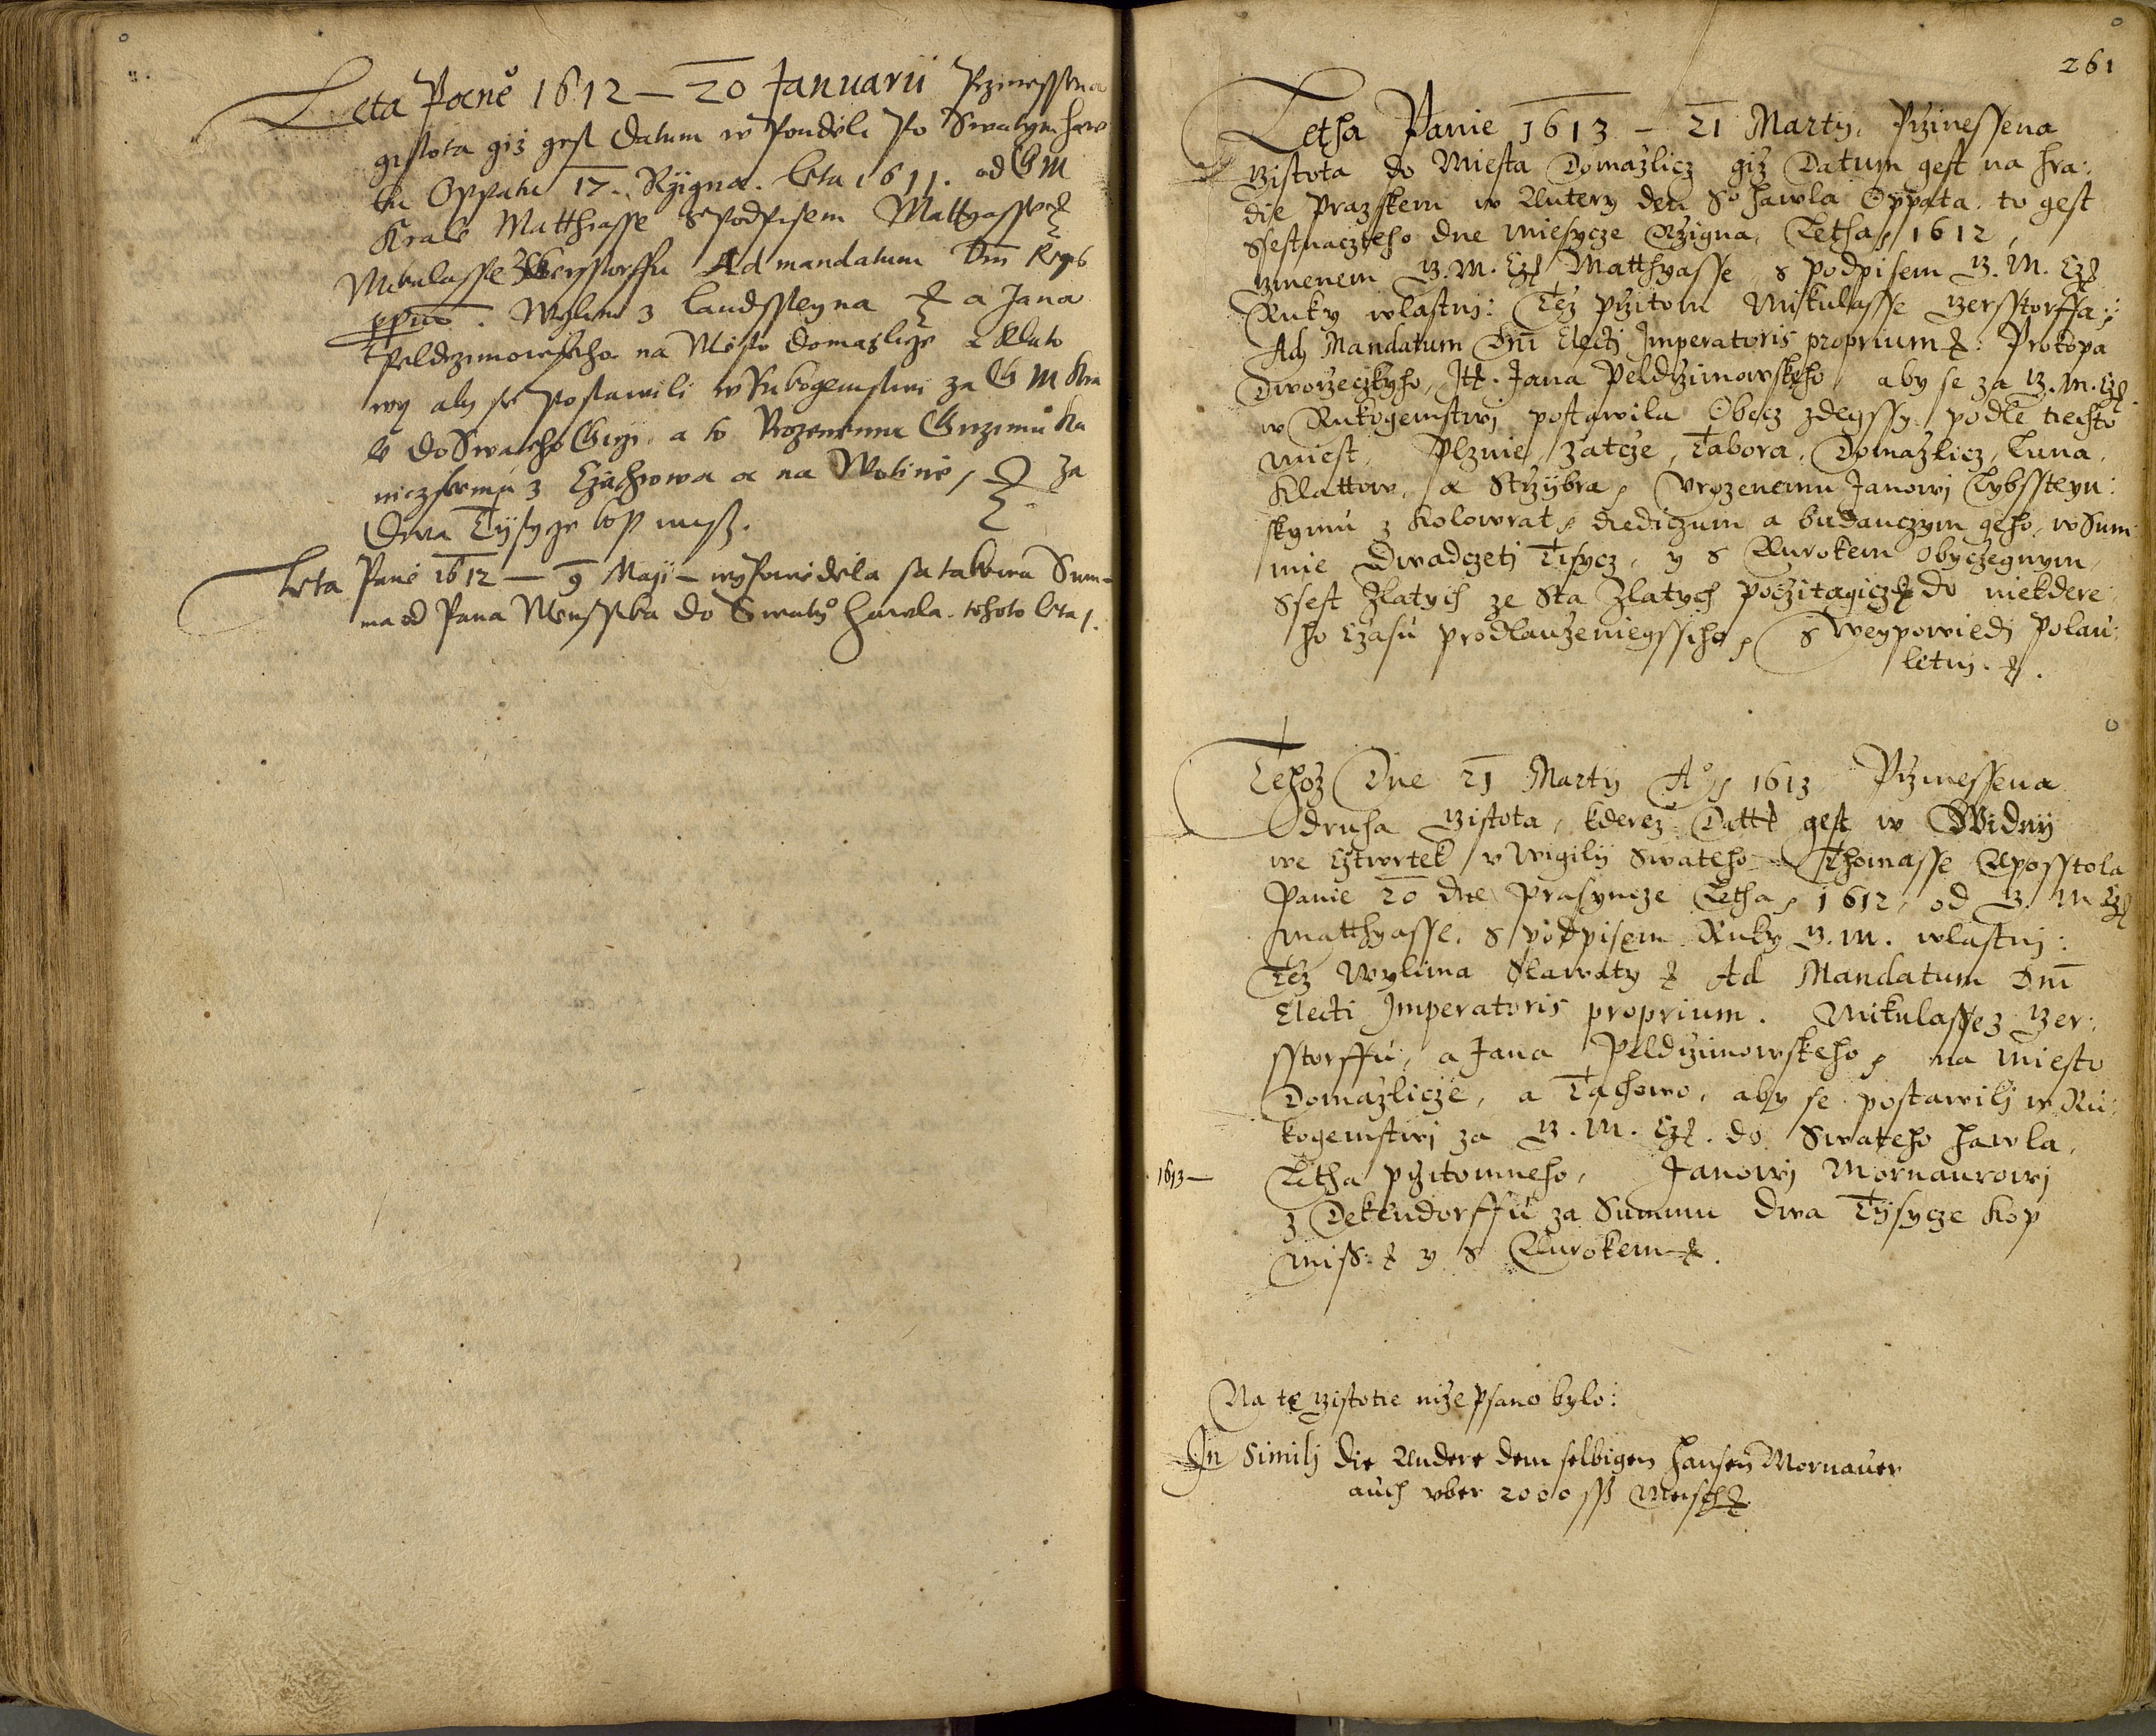 Leta Pane 1612 — 20 Januarii Przinessena
gistota giz gest Datum w Pondeli Po Swatym Haw
lu Oppatu 17. Rzigna. Leta 1611. od G M
Krale Matthiasse s Podpisem Mattyasse
Mikulasse z Gersstorffu Ad mandatum Dni Regis
ppriu. Wylima z Landssteyna a Jana
Peldrzimowskeho na Mesto Domazlicze a Klato
wy aby se Postawili w Rukogemstwi za G M Kra
le do Swateho Girzi. a to Urozenemu
niczskemu z Czachrowa a na Wolini, Za
Dwa Tisycze kop missz.
Leta Pane 1612 — 9 Maji — wypowidela sa takowa Sum-
ma od Pana do Swateho Hawla tohoto leta.
261
Letha Panie 1613 — 21 Marty, Przinessena
gistota do Miesta Domazlicz giz Datum gest na Hra:
die Prazskem w Autery den So Hawla Oppata. to gest
Ssestnaczteho dne Miesycze Rzigna, Letha 1612,
gmenem G. M. Cz Matthyasse s podpisem G. M. Cz
Ruky wlastnj: Tez przitom Mikulasse Gersstorffa:
Ad Mandatum Dni Electj Imperatoris proprium: Prokopa
Dworzeczkyho, Itt. Jana Peldrzimowskeho, aby se za G. M. Cz
w Rukogemstwj postawila Obecz zdegssy podle tiechto
Miest, Plznie, Zatcze, Tabora, Domazlicz, Luna,
Klattow, a Strzijbra, Urozenemu Janowj Lybssteyn:
skymu z Kolowrat, diediczum a budauczym geho, w Sum
mie Dwadczetj Tisycz, y s Aurokem obyczegnym,
Ssest Zlatych ze Sta Zlatych poczitagicz do niekdere:
ho Czasu prodlauzeniegssiho, s Weypowiedj Polau:
letnj.
Tehoz Dne 21 Marty Ao 1613 Przinessena
druha gistota, kderez Datt gest w Widnij
we Cztwrtek v Wigilij Swateho Thomasse Aposstola
Panie 20 dne Prasyncze Letha, 1612, od G. M. Cz
Matthyasse, s podpisem Ruky G. M. wlastnj:
Tez Wylima Slawaty Ad Mandatum Dni
Electi Imperatoris proprium. Mikulasse z Ger:
sstorffu, a Jana Peldrzimowskeho, na Miesto
Domazlicze, a Tachowo, aby se postawilj w Ru:
kogemstwj za G. M. Cz. do Swateho Hawla,
1613— Letha przitomneho, Janowj Mornaurowj
z Dekendorffu za Summu dwa Tijsycze Kop
Miss: y s Aurokem.
Na te gistotie nize psano bylo:
In Similj die Andere dem selbigen Hansen Mornauer
auch vber 2000 ss Meisch